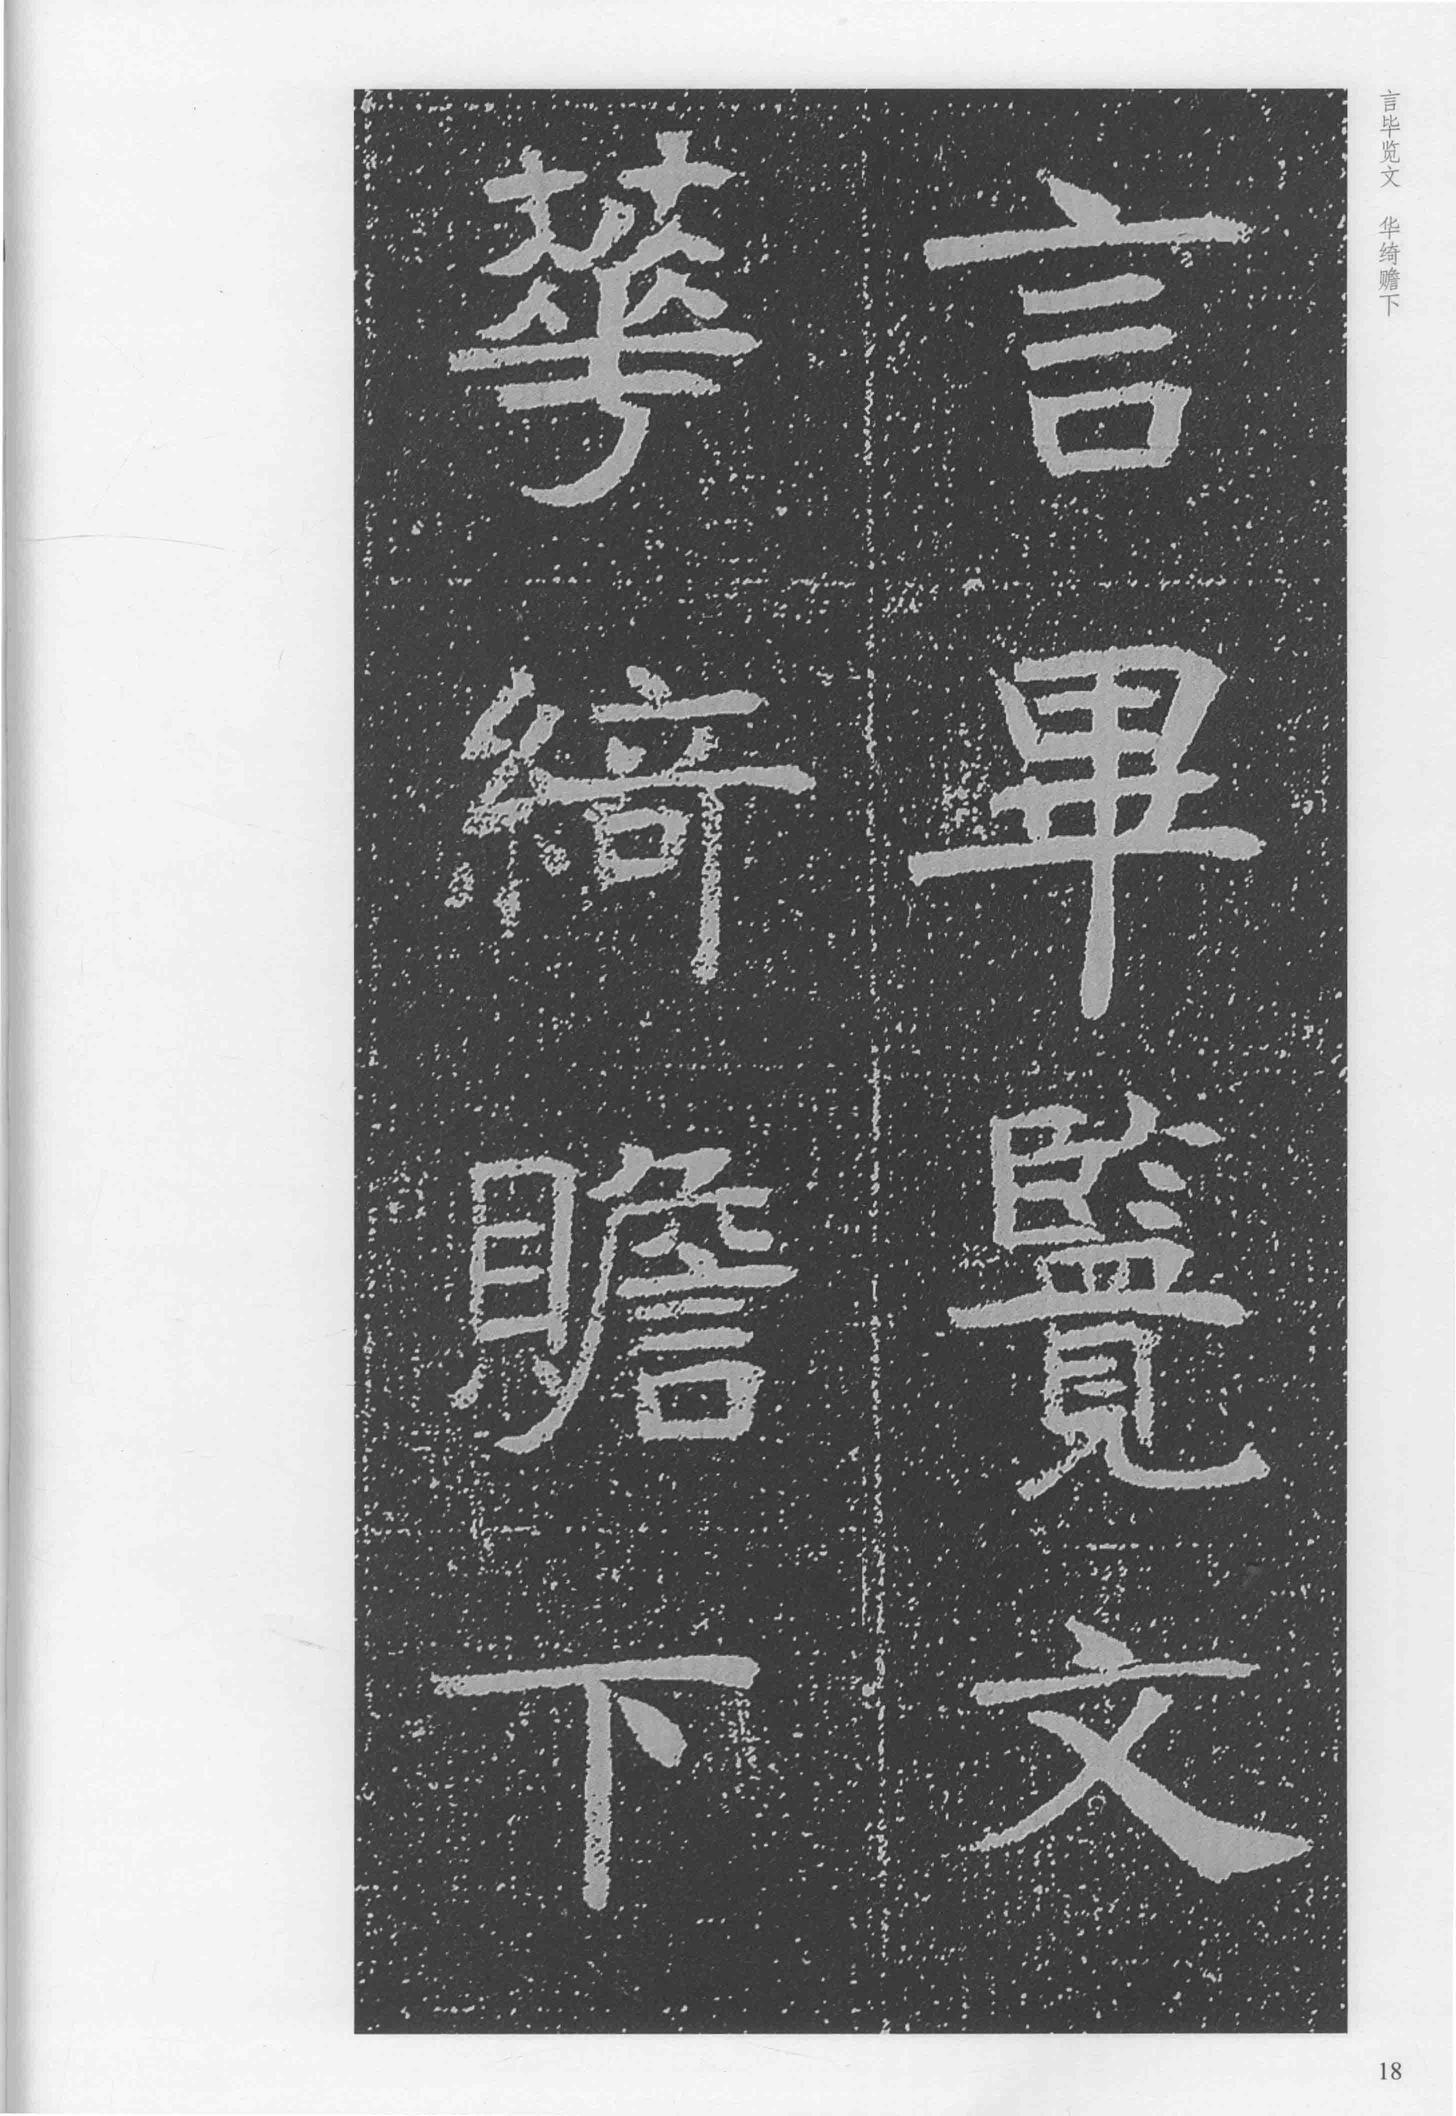 言毕览文 华绮赡下
言畢覽文
華綺贍下
18